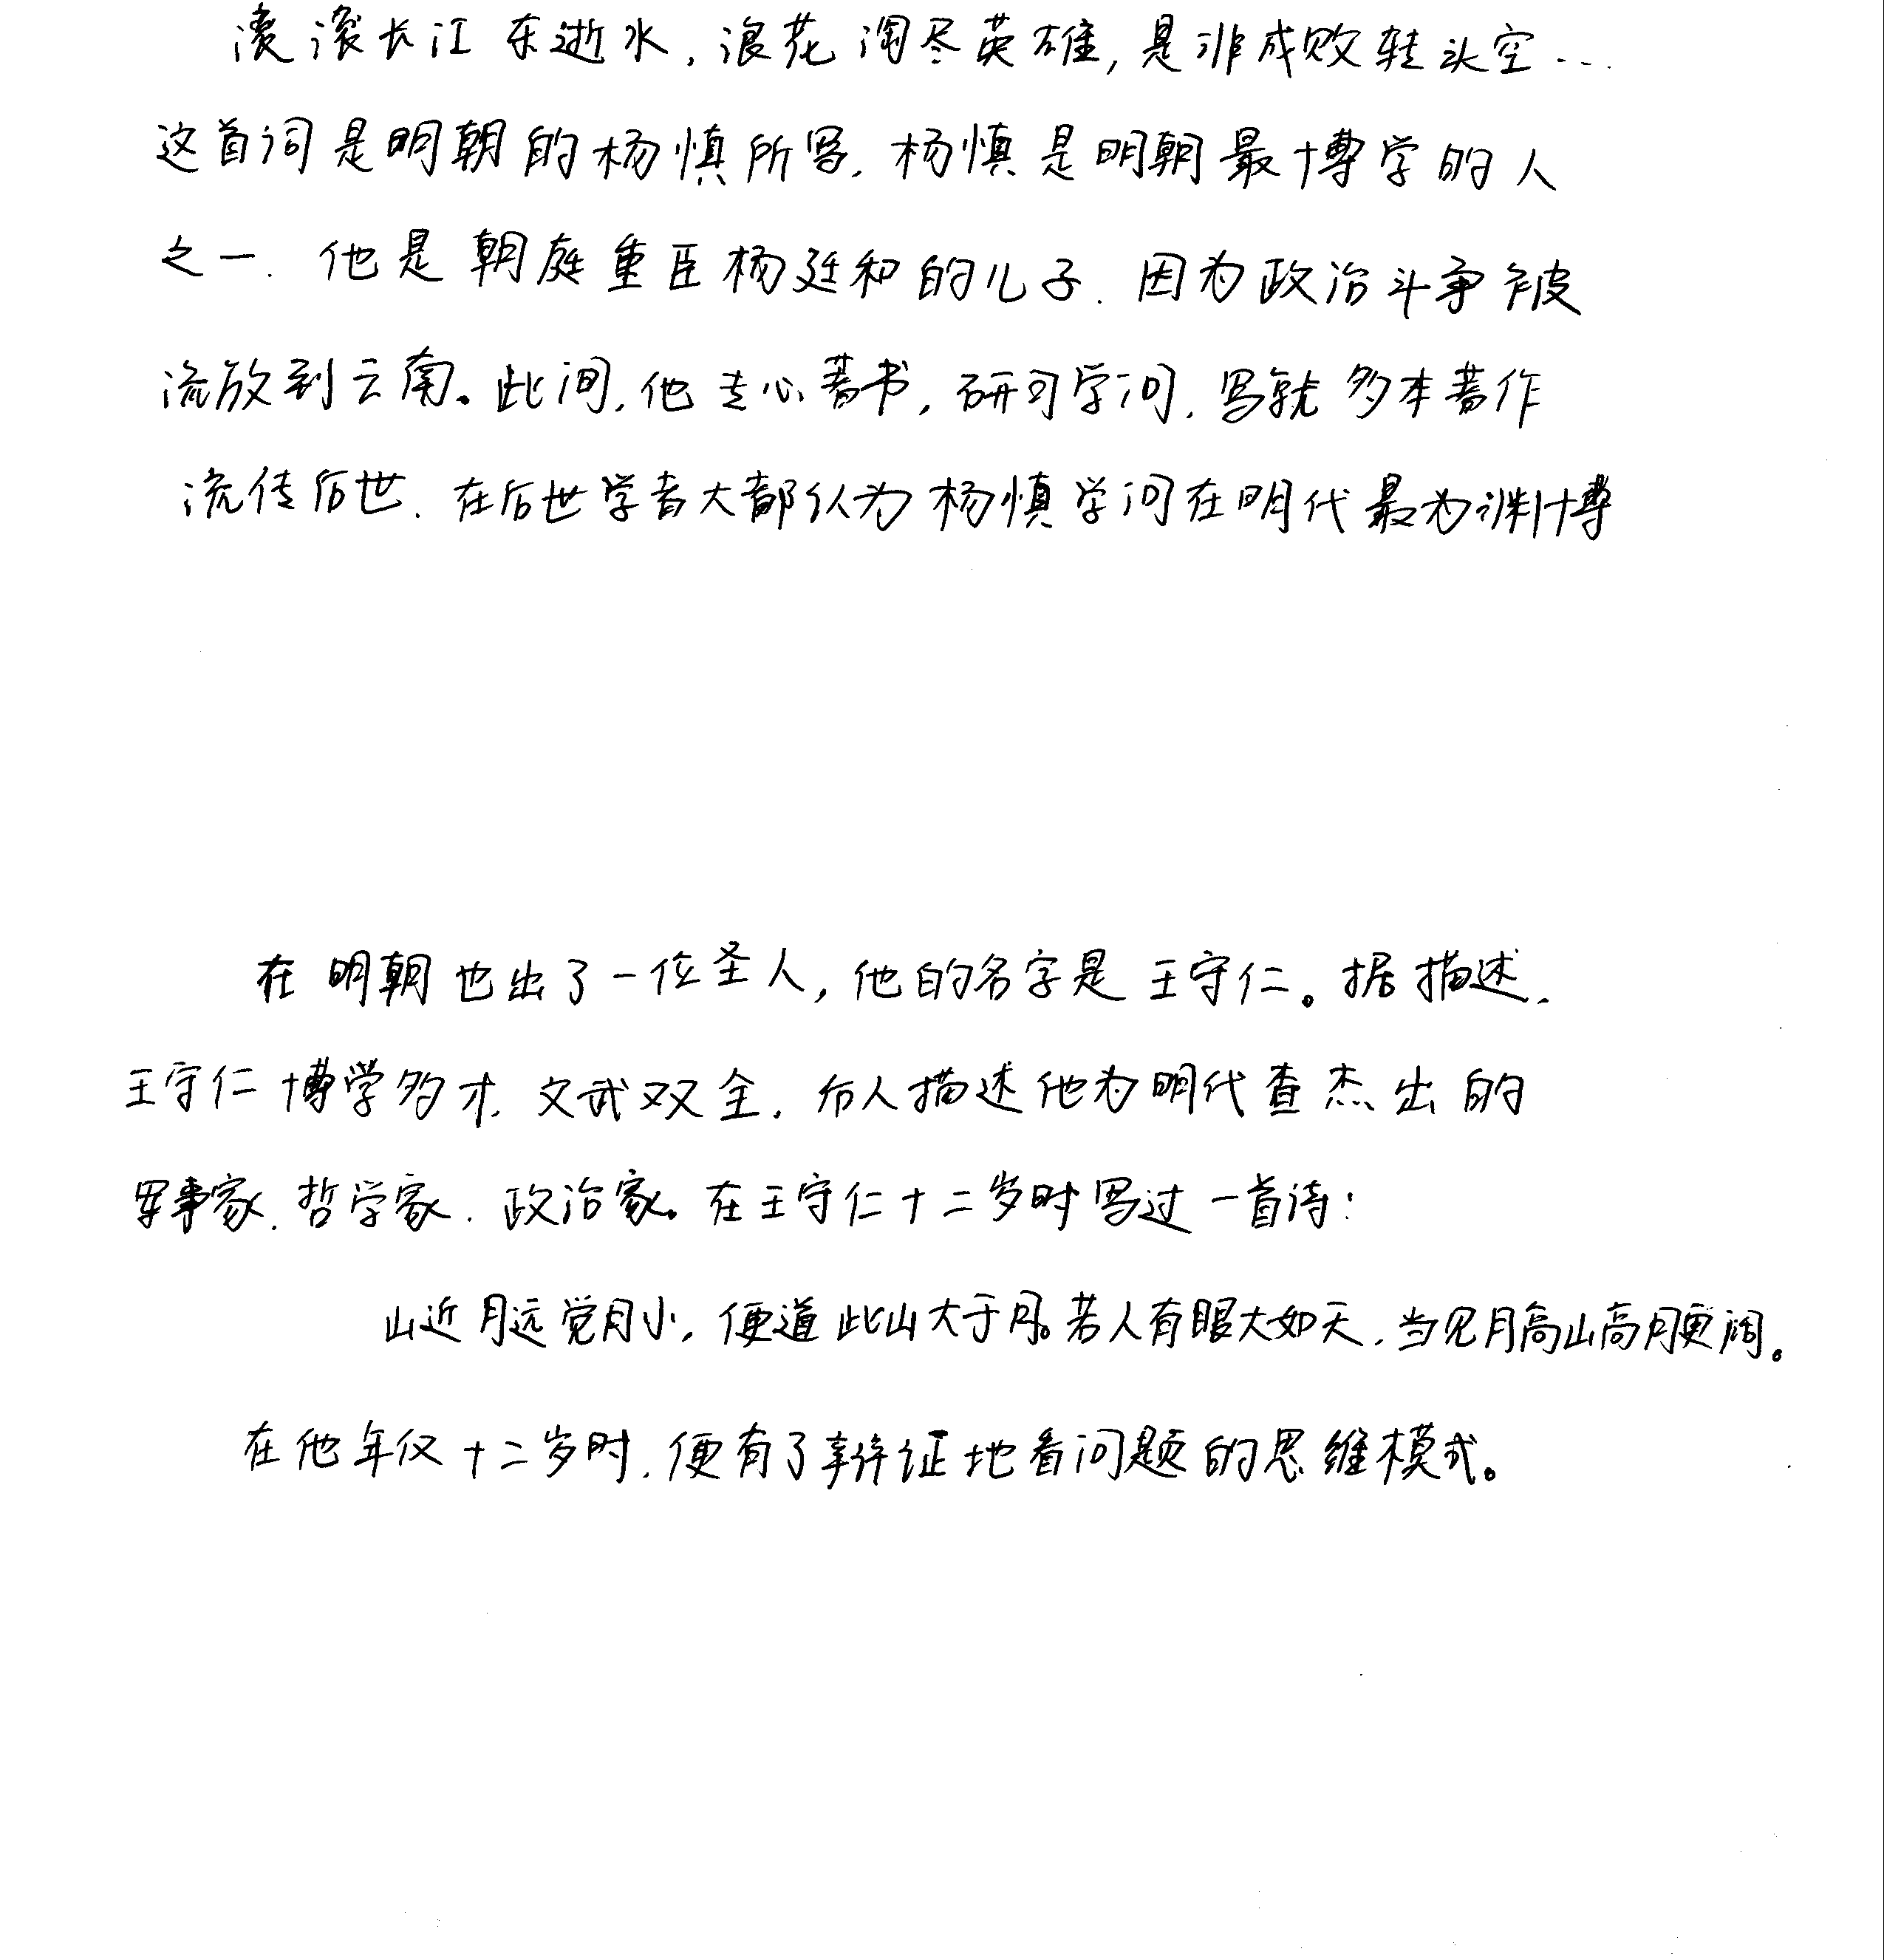 滚滚长江东逝水,浪花淘尽英雄,是非成败转头空...
这首词是明朝的杨慎所写,杨慎是明朝最博学的人
之一.他是朝庭重臣杨廷和的儿子.因为政治斗争被
流放到云南。此间,他专心著书,研习学问,写就多本著作
流传后世.在后世学者大都认为杨慎学问在明代最为渊博
在明朝也出了一位圣人,他的名字是王守仁。据描述,
王守仁博学多才,文武双全,后人描述他为明代查杰出的
军事家、哲学家、政治家。在王守仁十二岁时写过一首诗:
山近月远觉月小,便道此山大于月。若人有眼大如天,当见月高山高月更阔。
在他年仅十二岁时,便有了辩证地看问题的思维模式。